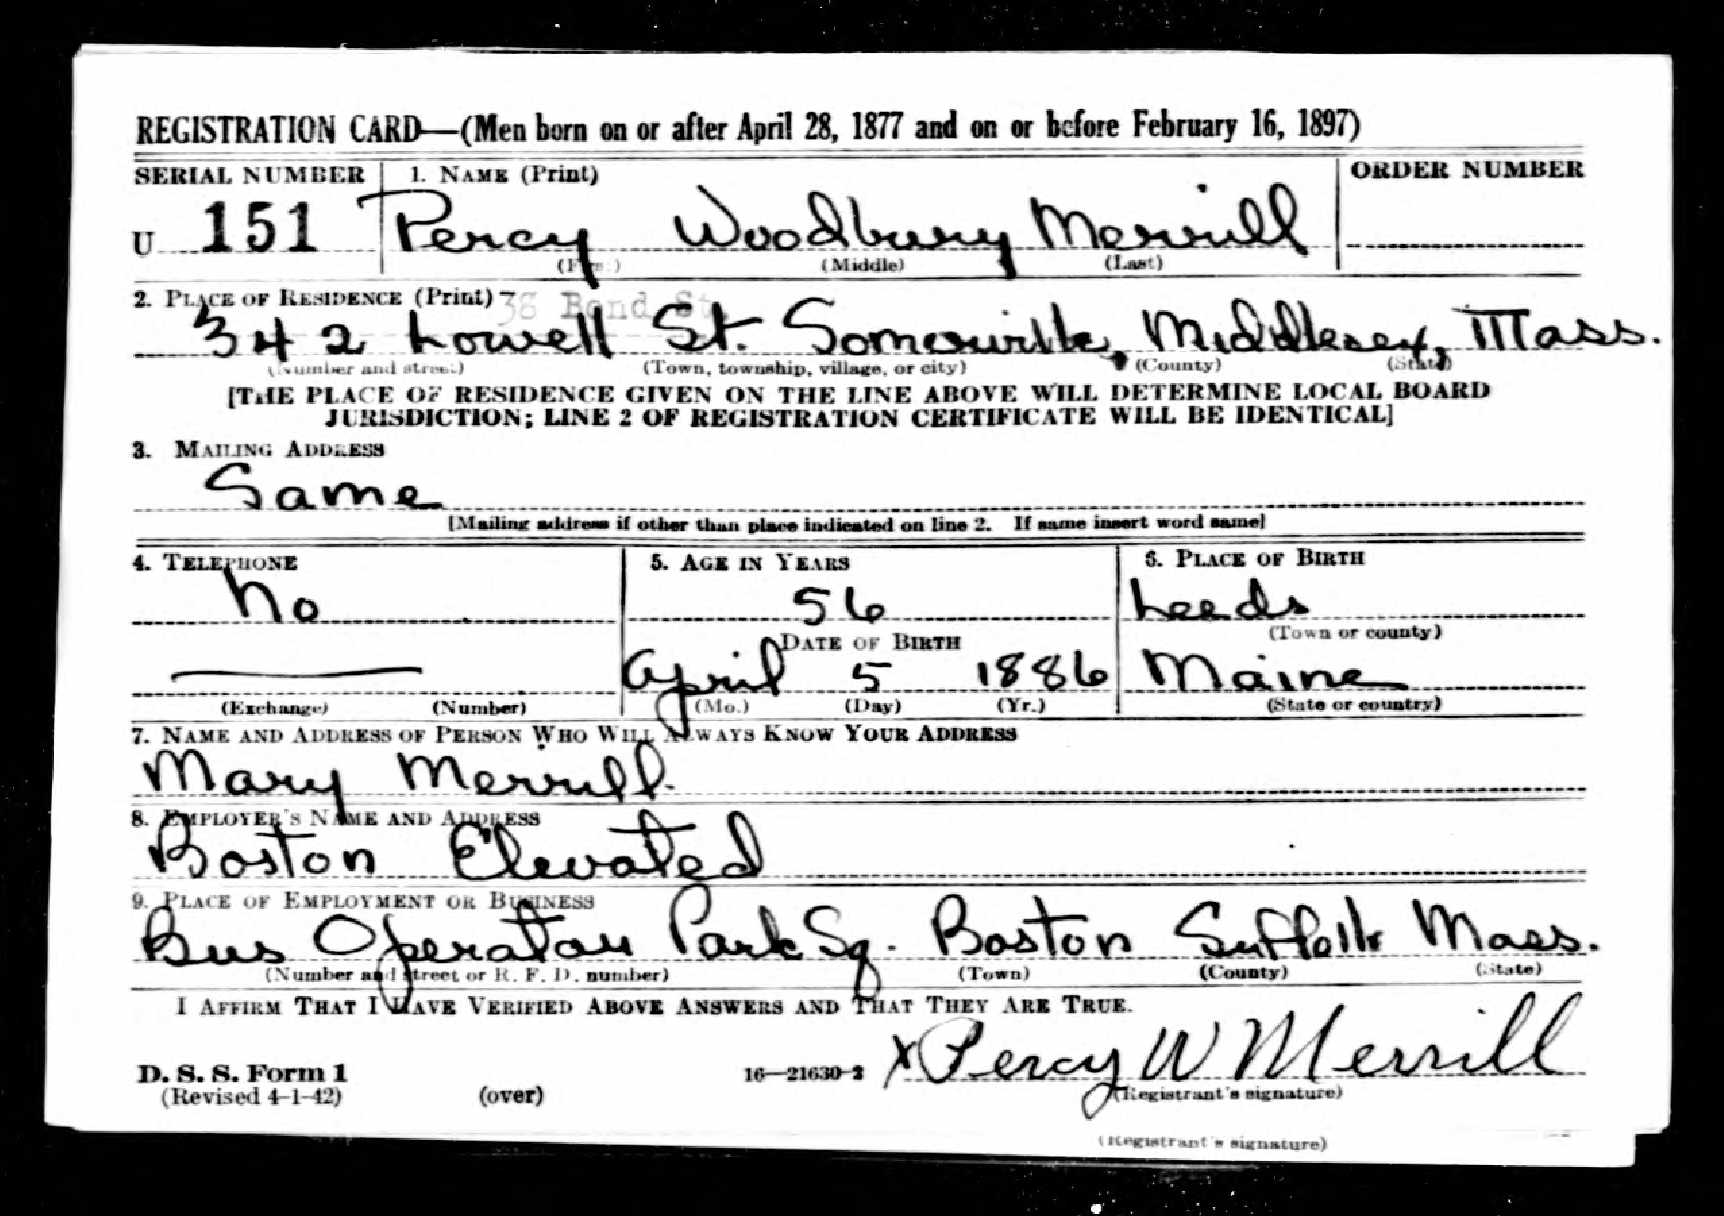 REGISTRATION CARD—(Men born on or after April 28, 1877 and on or before February 16, 1897)
SERIAL NUMBER 1. NAME (Print) ORDER NUMBER
U 151 Percy Woodbury Merrill
(First) (Middle) (Last)
2. PLACE OF RESIDENCE (Print) 38 Bond St.
342 Lowell St. Somerville, Middlesex, Mass.
(Number and street) (Town, township, village, or city) (County) (State)
[THE PLACE OF RESIDENCE GIVEN ON THE LINE ABOVE WILL DETERMINE LOCAL BOARD
JURISDICTION; LINE 2 OF REGISTRATION CERTIFICATE WILL BE IDENTICAL]
3. MAILING ADDRESS
Same
[Mailing address if other than place indicated on line 2. If same insert word same]
4. TELEPHONE 5. AGE IN YEARS 6. PLACE OF BIRTH
No 56 Leeds
DATE OF BIRTH (Town or county)
April 5 1886 Maine
(Exchange) (Number) (Mo.) (Day) (Yr.) (State or country)
7. NAME AND ADDRESS OF PERSON WHO WILL ALWAYS KNOW YOUR ADDRESS
Mary Merrill.
8. EMPLOYER'S NAME AND ADDRESS
Boston Elevated
9. PLACE OF EMPLOYMENT OR BUSINESS
Bus Operator Park Sq. Boston Suffolk Mass.
(Number and street or R. F. D. number) (Town) (County) (State)
I AFFIRM THAT I HAVE VERIFIED ABOVE ANSWERS AND THAT THEY ARE TRUE.
D. S. S. Form 1 16—21630-2 X Percy W Merrill
(Revised 4-1-42) (over) (Registrant's signature)
(Registrant's signature)